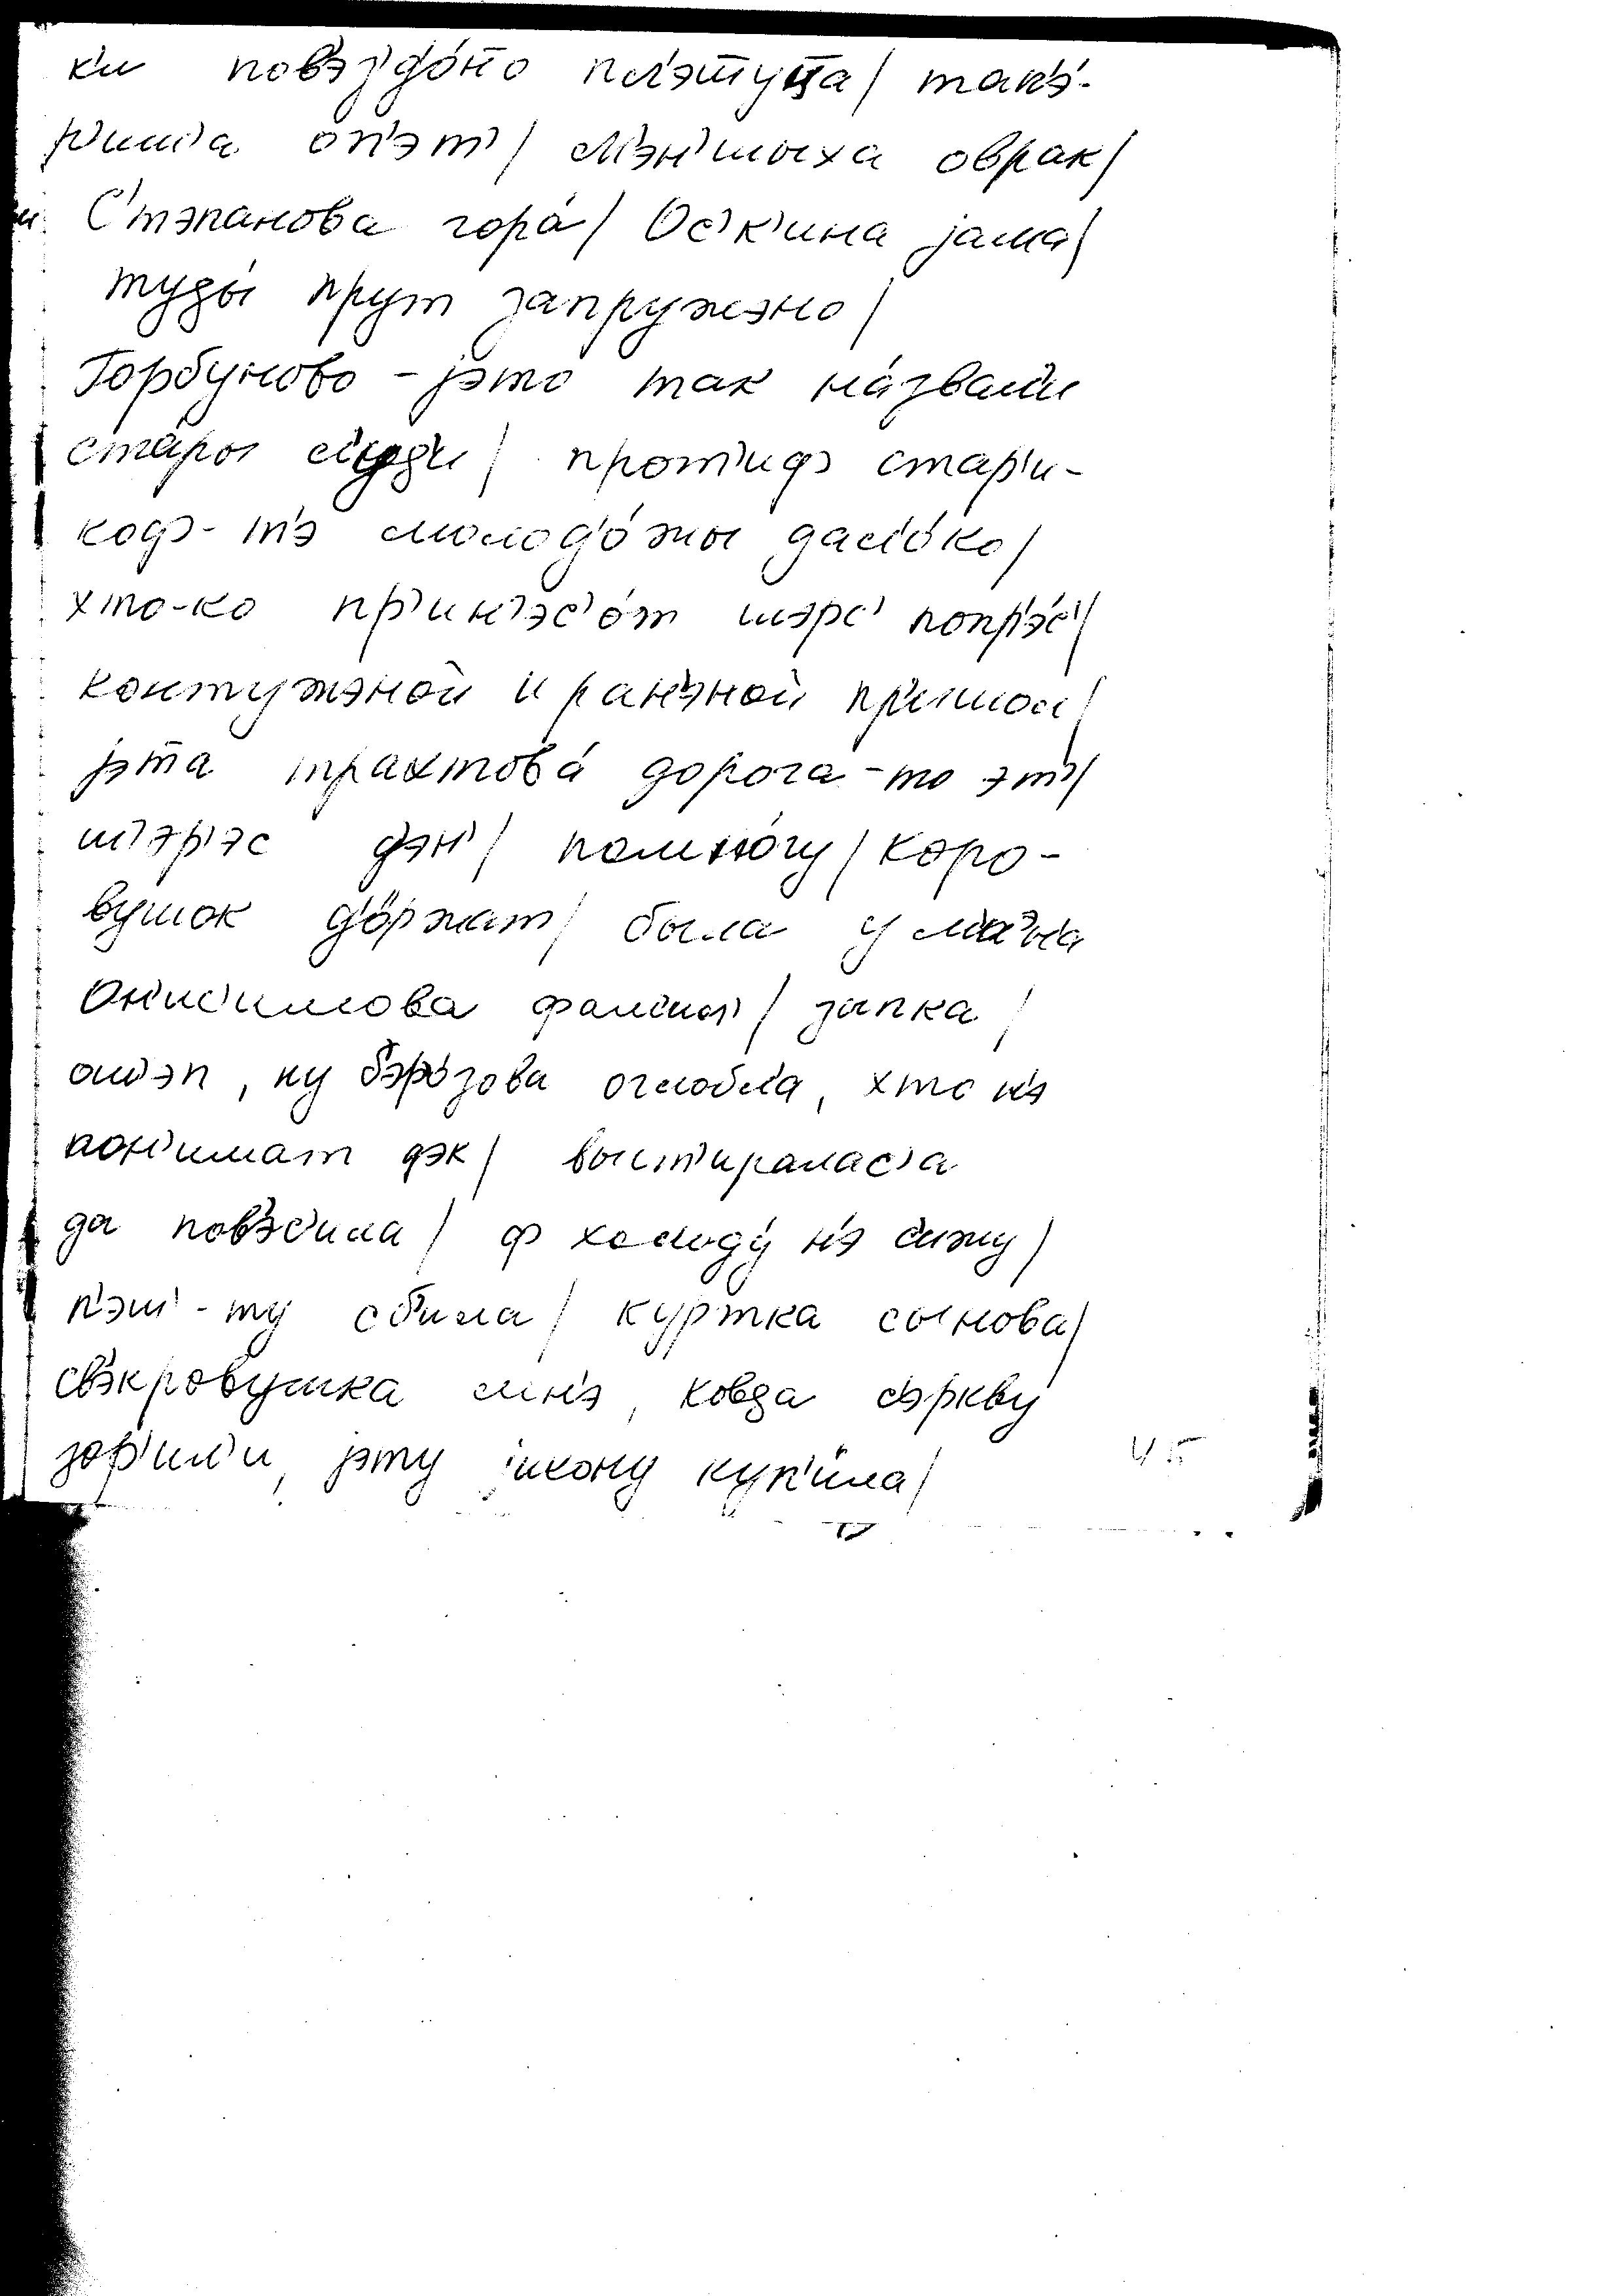 к'и пов'эзд'о́но пл'эту́ца / так'э́-
р'иш'а оп'эт' / М'э́н'шыха оврак /
С'т'эпанова гора́ / Ос'к'ина јама /
туды́ прут запружэно /
Горбуново - јэто так на́звал'и
ста́ры л'уд'и / прот'иф стар'и-
коф-т'э молод'о́жы дал'о́ко /
хто-ко пр'ин'эс'о́т шэрс' попр'э́с' /
контужэной и ран'эной пр'ишол /
јэта трахтова́ дорога-то эт' /
ш'эр'эс д'эн' / помно́гу / коро-
вушок д'о́ржат / была у м'эн'а
Он'ис'имова фам'ил' / запка /
ош'эп, ну б'эр'о́зова оглобл'а, хто н'э
пон'имат дэк / выст'иралас'а
да пов'эс'ила / ф холоду́ н'э с'ижу /
п'эш'-ту сб'ила / куртка сынова /
св'экровушка мн'э, ковда с'э́ркву
зор'ил'и, јэту јикону куп'и́ла /
45